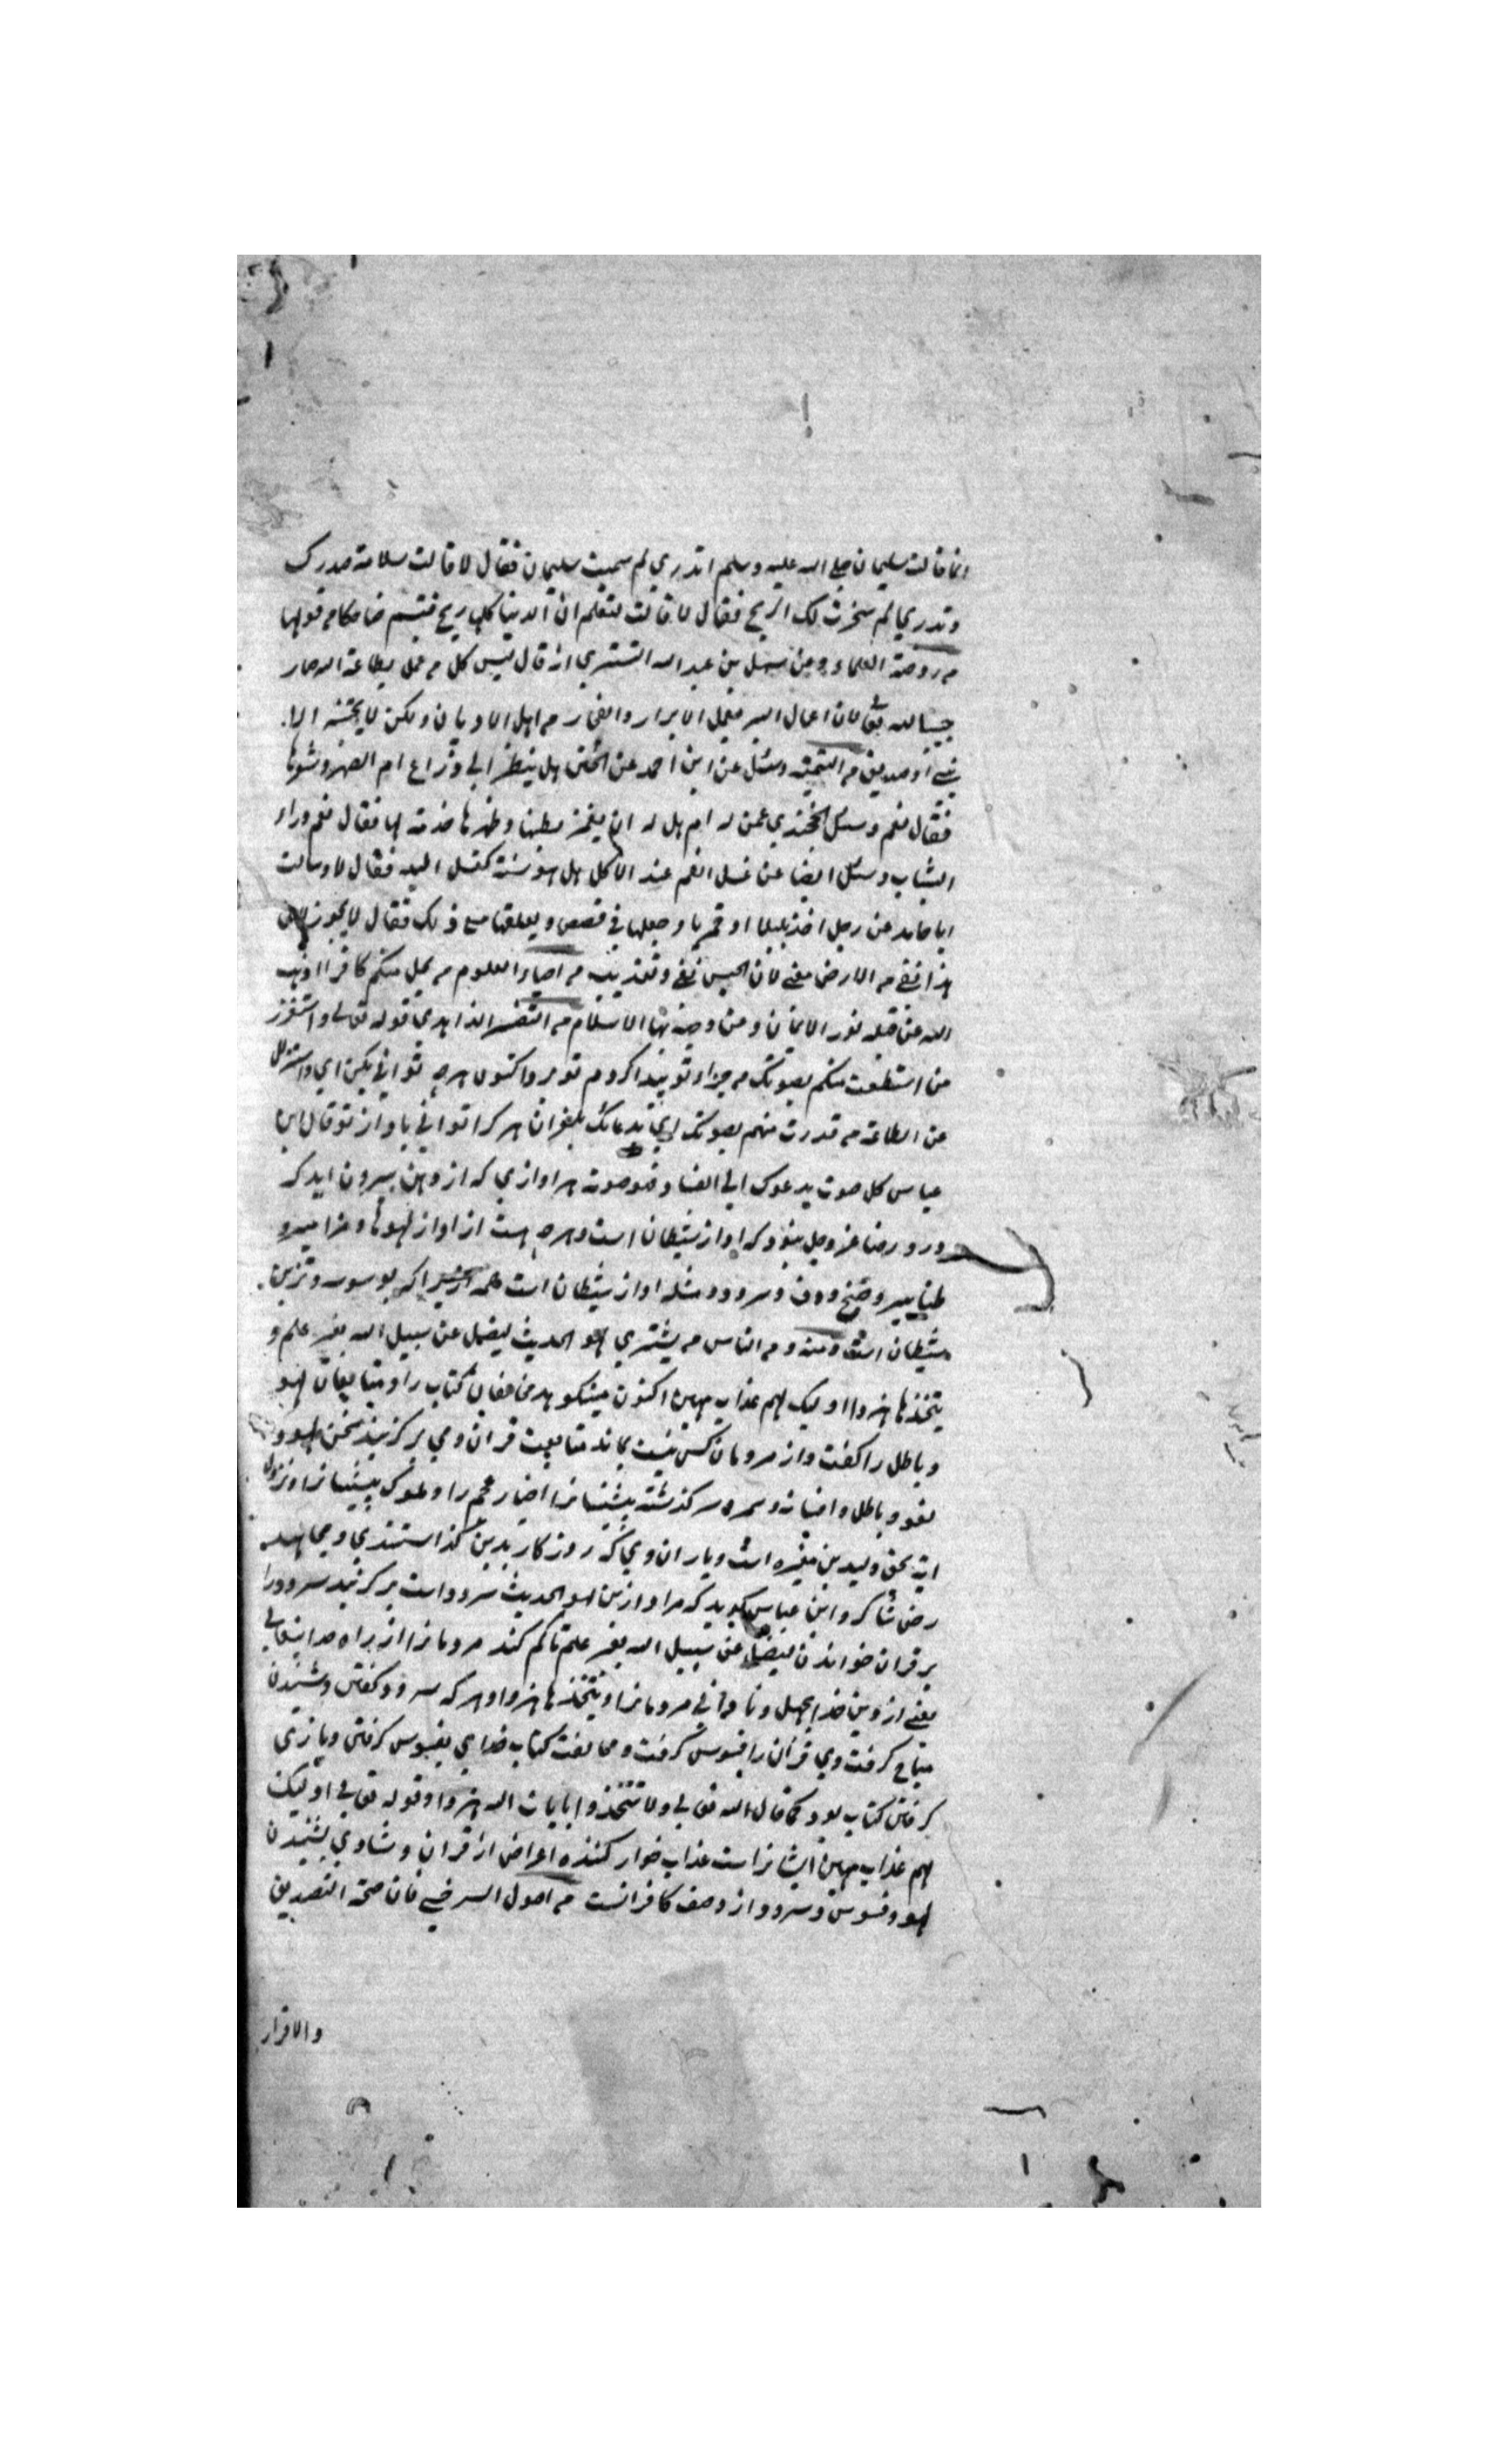 انما قالت سليمان صلى الله عليه وسلم اتدري لم سميت سليمان فقال لا قالت سلامة صدرك
وتدري لم سخرت لك الريح فقال لا قالت لتعلم ان الدنيا كلها ريح فتبسم ضاحكا من قولها
من روضة العلماء وعن سهل بن عبد الله التستري انه قال ليس كل من عمل بطاعة الله صار
حبيبا لله لان اعمال البر يعمل الابرار والفجار من اهل الاديان ولكن لا يجتنبه الا
نبي او صديق من اليتيمة وسئل عن ابن احمد عن الختن هل ينظر الى ذراع ام الصهر وشونها
فقال نعم وسئل الخجندي عمن له ام هل له ان يغمز بطنها وظهرها خدمة لها فقال نعم وراء
الثياب وسئل ايضا عن غسل الفم عند الاكل هل هو سنة كغسل اليد فقال لا وسالت
ابا حامد عن رجل اخذ بلبلا او قمريا وجعلها في قفص ويعلفها مع ذلك فقال لا يجوز لان
هذا نفي من الارض معنى لان الحبس نفي وتعذيب من احياء العلوم من يحل منكم كافرا اذهب
الله عن قلبه نور الايمان ومن وجهه بهاء الاسلام من التفسير الزاهدي قوله تعالى واستفزز
من استطعت منكم بصوتك من جزاء تو پيدا كردم تو برو اكنون هرچه تواني بكن اي واستزل
عن الطاعة من قدرت منهم بصوتك اي بدعائك بلغزان هر كرا تواني باواز تو قال ابن
عباس كل صوت يدعوك الى الفساد فهو صوته هر اوازي كه از دهن بيرون ايد كه
در و رضا عز وجل نبود كه اواز شيطان است وهرچه هست از اواز لهوها ومزامير و
طنابير وصنج ودف وسرود مثله اواز شيطان است بوسوسه وتزيين
شيطان است ومنه ومن الناس من يشتري لهو الحديث ليضل عن سبيل الله بغير علم و
يتخذها هزوا اوليك لهم عذاب مهين اكنون مينكوهد مخالفان كتاب را ومتابعان لهو
وباطل را كفت واز مردمان كس نيست بماند متابعت قران ومي بركزيند سخن لهو و
لغو وباطل وافسانه وسمر و سركذشته پيشينانرا اخبار عجم را وملوك پيشينانرا ونزول
ايه بحق وليد بن مغيره است وياران وي كه روزكار بدين كذاستندي ومجاهد
رضي شاكرد ابن عباس كويد كه مراد ازين لهو الحديث سرود است بركزيند سرود را
بر قران خواندن ليضل عن سبيل الله بغير علم تا كم كند مردمانرا از راه خدايتعالى
معنى از دين خدا بجهل وناداني مردمانرا ويتخذها هزوا وهر كه سرود كفتن وشنيدن
مباح كرفت وي قران را فسوس كرفت ومخالفت كتاب خداي بفسوس كرفتن وبازي
كرفتن كتاب بود كما قال الله تعالى ولا تتخذوا ايات الله هزوا وقوله تعالى اوليك
لهم عذاب مهين ايشانراست عذاب خوار كننده اعراض از قران وشادي بشنيدن
لهو وفسوس وسرود از وصف كافرانست من اصول السرخسي فان صحة التصديق
والاقرار